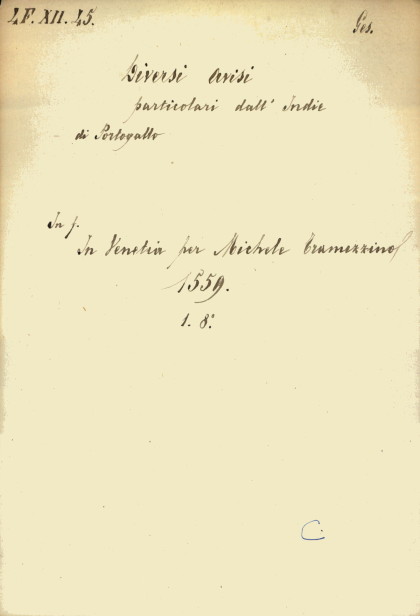 4F. XII. 45.
Ges.
Diversi Avisi
particolari dall' Indie
di Portogallo
In f.
In Venetia per Michele Tramezzino
1559.
1. 8°
C.